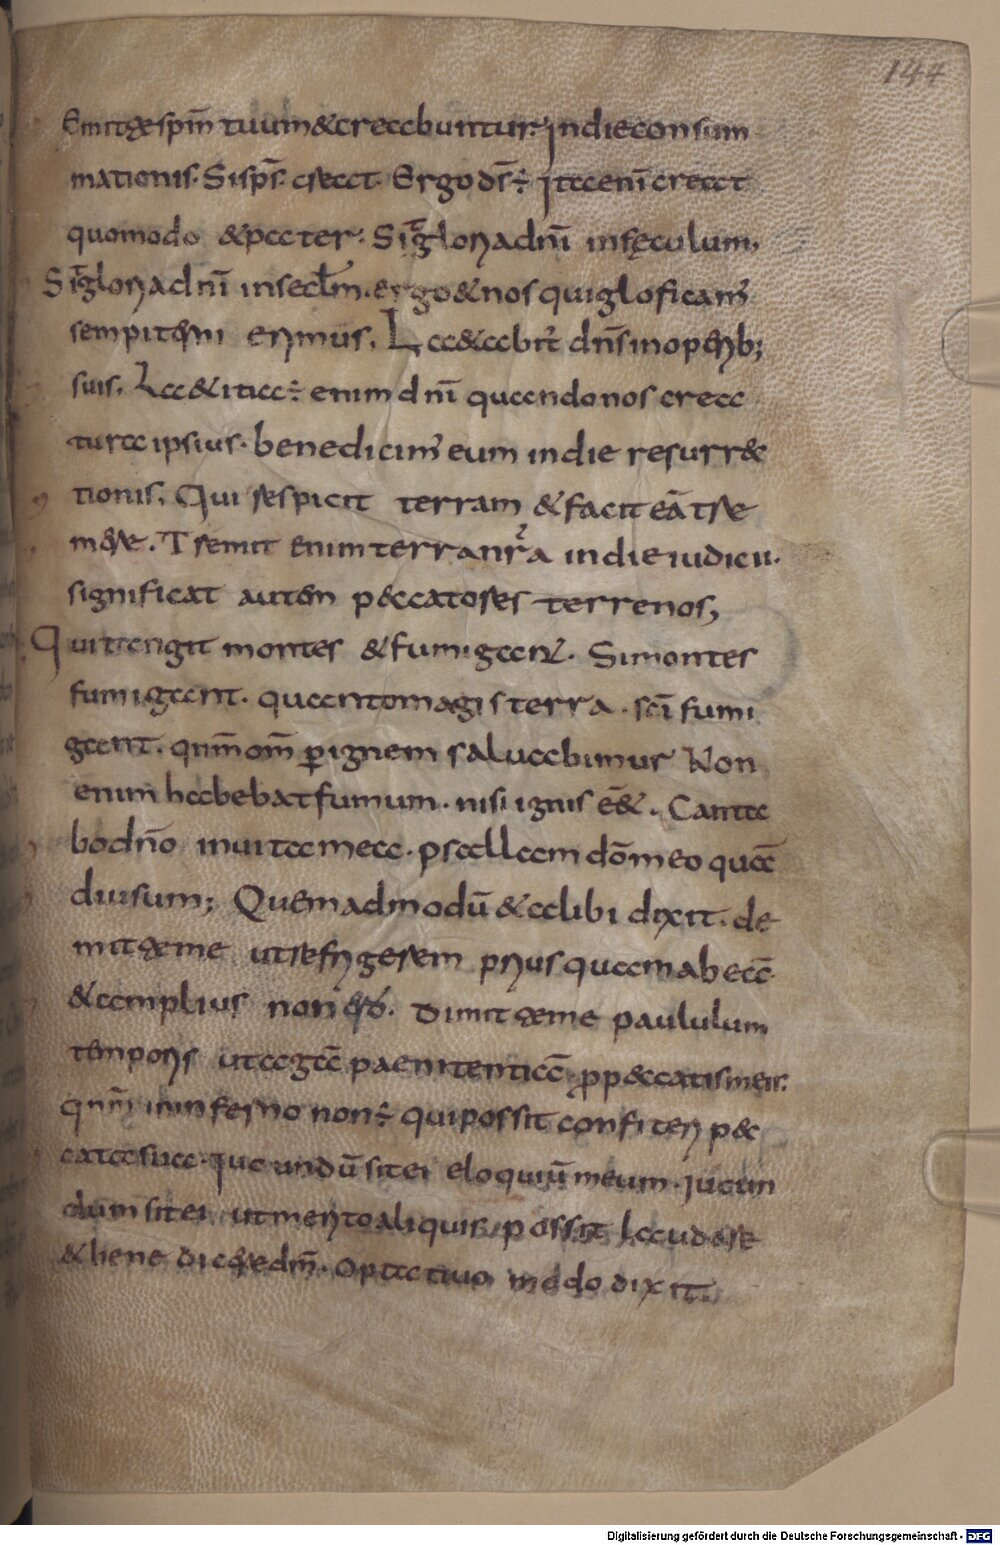 144
Emittesp̄m tuum & creabuntur. In die consum
mationis. Si sp̄s creat. Ergo ds̄ ÷ Ita enī creat
quomodo & pater. Sit gloria dn̄i in sęculum,
Sit gloria dn̄i in secl̄m. ergo & nos qui glorificam'
sempiterni erimus. Laetabit̄ dn̄s in operib;
suis. Laetitia ÷ enim dn̄i quando nos crea
turae ipsius benedicim' eum in die resurrec
tionis. Qui respicit terram & facit eā tre
mere. Tremit enim terra nr̄a in die iudicii.
significat autem peccatores terrenos,
Qui tangit montes & fumigant. Si montes
fumigant. quanto magis terra. sc̄i fumi
gant. qnm̄ om̄ per ignem saluabimur Non
enim habebat fumum. nisi ignis eēt. Canta
bo dn̄o in uita mea. psallam dō meo quā
diu sum; Quemadmodū & alibi dixit. de
mitte me ut refrigerem prius quam abeā
& amplius non ero. Dimitte me paululum
temporis ut agā paenitentiā pro peccatis meis.
qnm̄ in inferno non ÷ qui possit confiteri pec
cata sua. Iucundū sit ei eloquiū meum. Iucun
dum sit ei ut merito aliquis possit laudare
& benedicere dm̄. Optatiuo modo dixit.
Digitalisierung gefördert durch die Deutsche Forschungsgemeinschaft - DFG